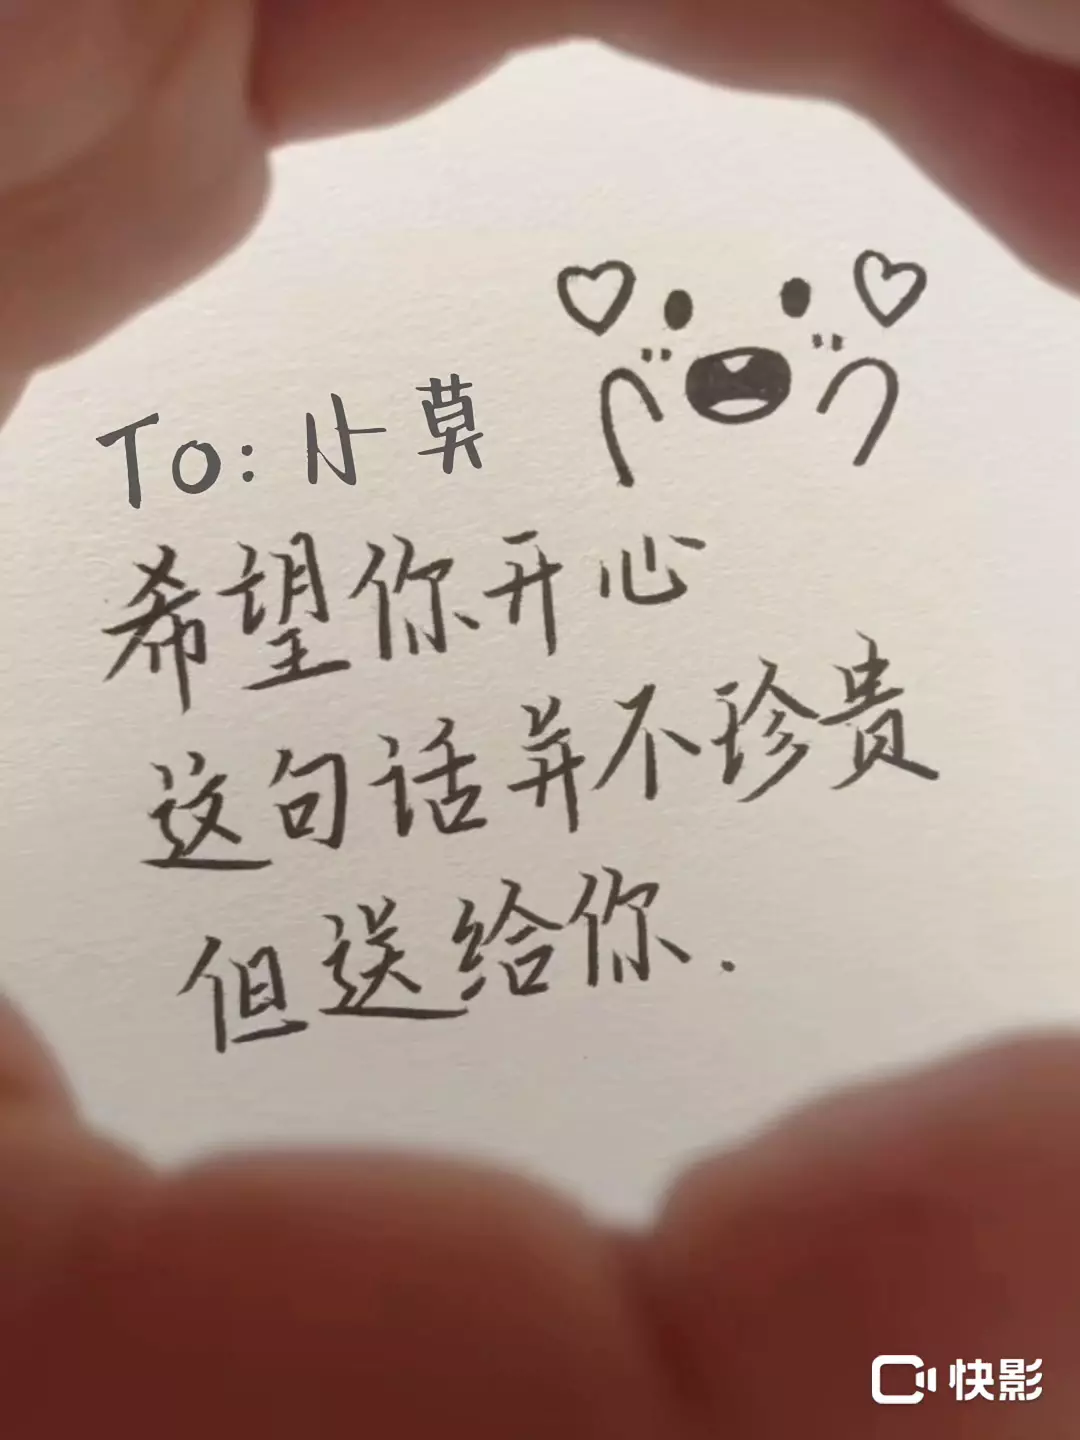 To: 小莫
希望你开心
这句话并不珍贵
但送给你.
快影